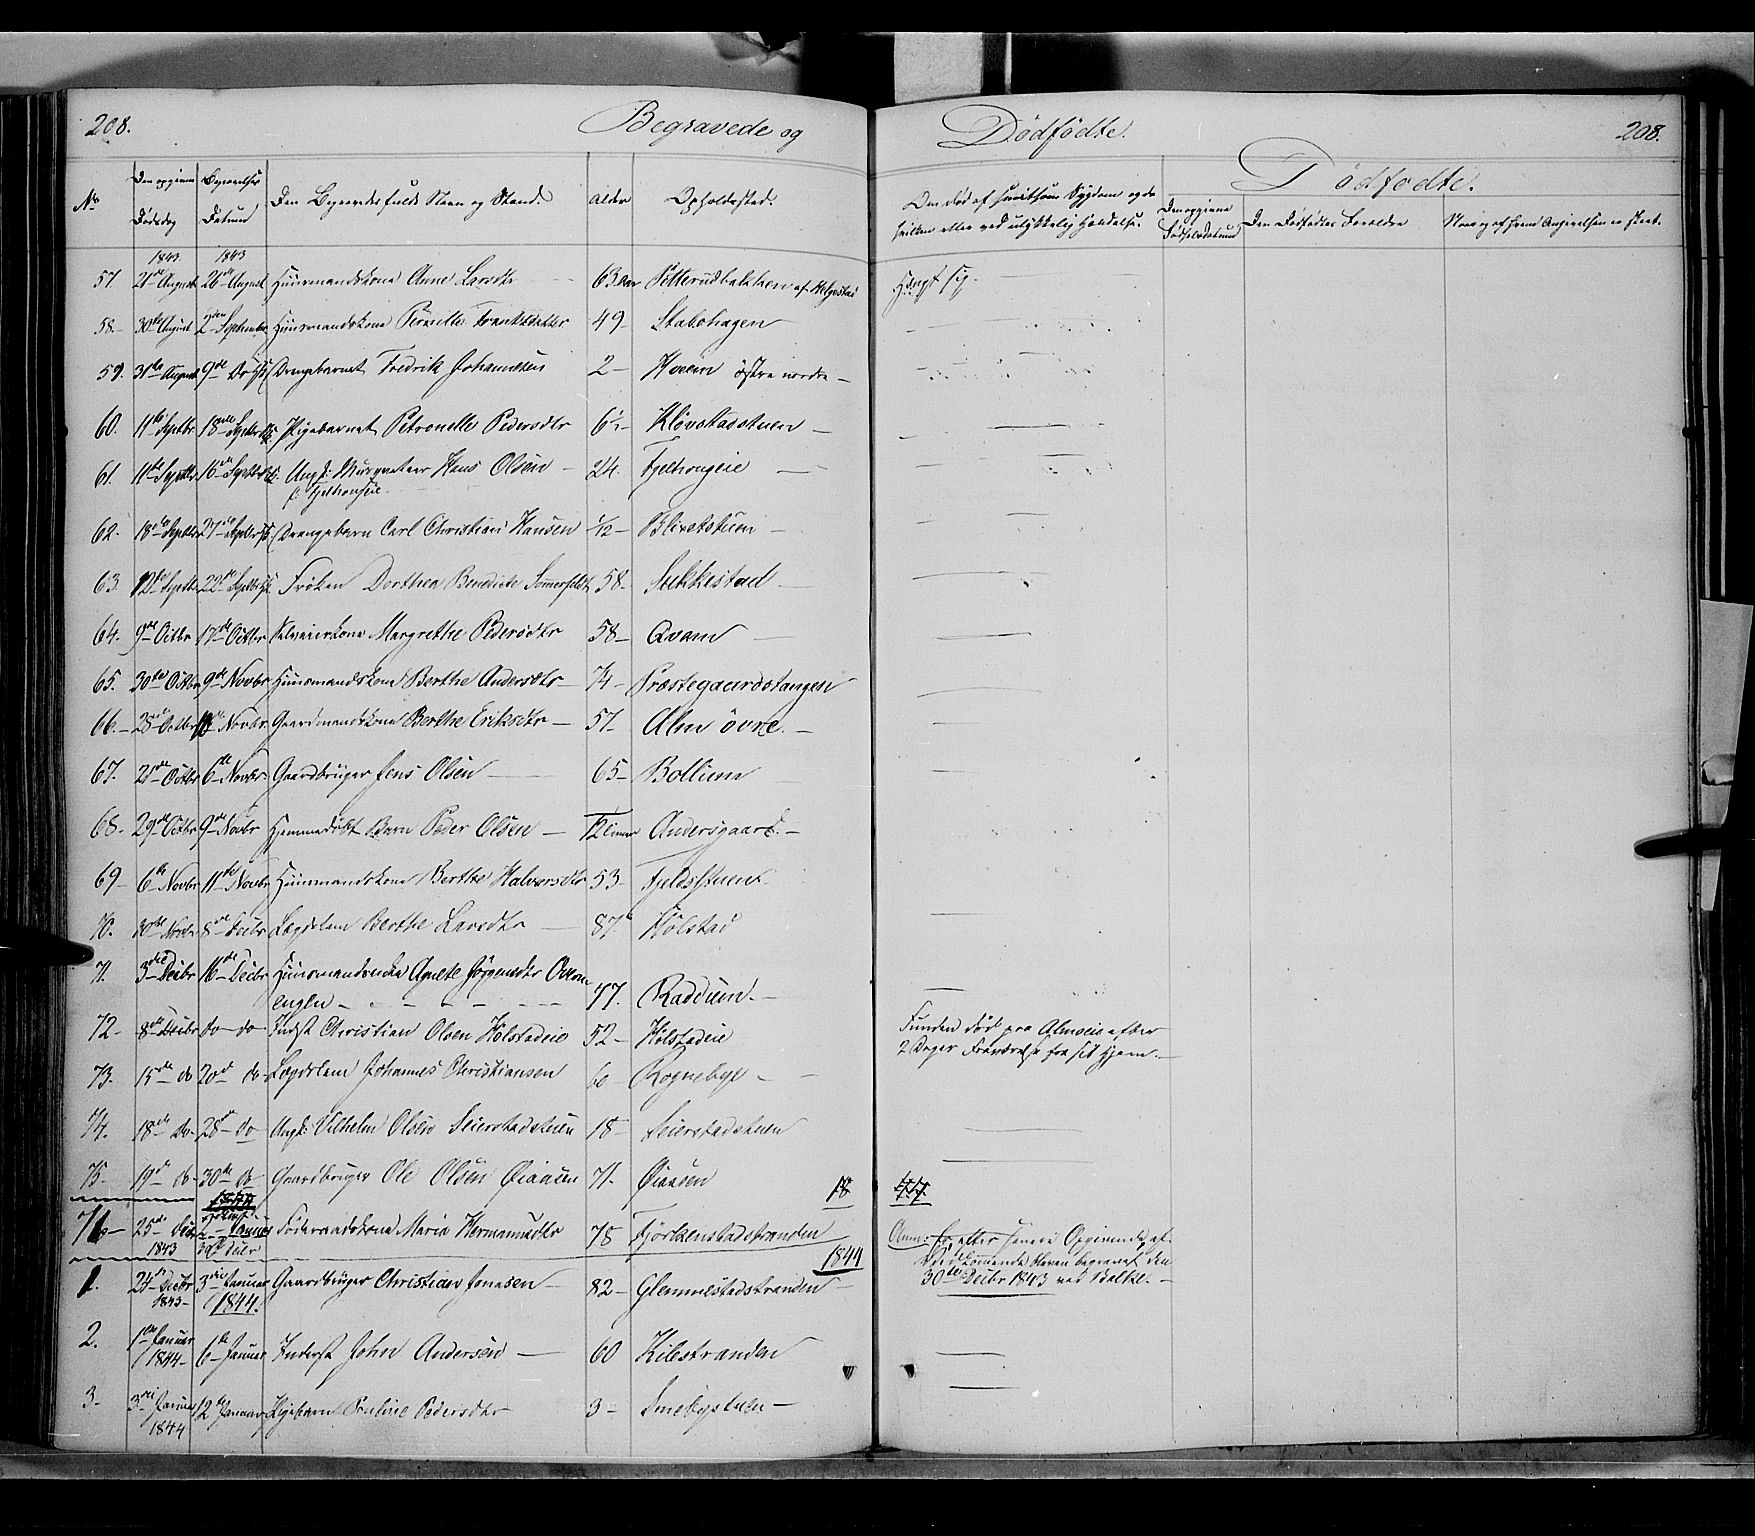 208. Begravede og Dødfødte. 208.
Dødfødte.
No Den opgivne Dødsdag Begravelses Datum Den Begravedes fulde Navn og Stand. Alder Opholdssted. Om død af smitsom Sygdom og da hvilken eller ved ulykkelig Hændelse. Den opgivne Fødselsdatum Den Dødfødtes Forældre Naar og af hvem Angivelsen er skeet.
1843. 1843
57. 21de August 26de August Huusmandskone Anne Larsdtr 63 Aar Petterudbakken af Helgestad Hængt sig.
58.- 30te August 2den September Huusmandskone Pernille Frantsdatter 49- Stabohagen
59. 31te August 9de Drengebarnet Fredrik Johannesen 2- Hveem østre nordre-
60. 11te Septbr 18de Septbr Pigebarnet Petronelle Pedersdtr 6½- Kløvstadstuen -
61. 11te Septbr 16de Septbr Ungk: Hans Olsen - 24. Fjelhougeie -
f: Fjelhougeie
62. 18de Septbr 27de Septbr Drengebarn Carl Christian Hansen ½- Blixetstuen -
63 12te Septbr 22de Septbr Frøken Dorthea Benedicte Sommerfeldt 58- Sukkestad -
64. 9de Octbr 17de Octbr Selveierkone Margrethe Pedersdtr 58- Qvam -
65. 30te Octbr 9de Novbr Huusmandskone Berthe Andersdtr- 74- Præstegaardstangen
66.- 28de Octbr Novbr Gaardmandskone Berthe Eriksdtr- 57- Alm øvre.-
67. 21de Octbr 6te Novbr Gaardbruger Jens Olsen - 65- Bollum
68- 29de Octbr 9de Novbr Hjemmedøbt Barn Peder Olsen - 12 Timer Andersgaard.-
69- 6te Novbr 11te Novbr Huusmandskone Berthe Halvorsdtr 53- Fjeldsstuen.
70. 30te Novbr 8de Decbr Lægdslem Berthe Larsdtr - 87. Holstad
71. 3die Decbr 16de Decbr Huusmandsenke Agnete Jørgensdtr
englen - 77. Raddum.-
72- 8de Decbr do- do Inderst Christian Olsen Holstadeie 52- Holstadeie Funden død paa Almeie efter
2 Dages Fraværelse fra sit Hjem.-
73. 15de do 20de do- Lægdslem Johannes Christiansen 60- Rognebye -
74. 18de do- 28de do Ungk: Vilhelm Olsen Seierstadstuen 18- Seierstadstuen
75- 19de do- 30te do Gaardbruger Ole Olsen Øiaasen 71. Øiaasen 18 44
1844
76- 25de Decbr 1843 Januar 30te Decbr Føderaadskone Maria Hermansdtr 78 Fjørkenstadstranden Anm: efter senere Opgivende af
Vedkommende bleven begravet den
30te Decbr 1843 ved Balke.-
1844
1. 24de Decbr 1843- 3die Januar 1844. Gaardbruger Christian Jonasen- 82- Glemmestadstranden
2. 1ste Januar 1844- 6te Januar Inderst John Andersen - 60 Kilestranden
3- 3die Januar 1844 12te Januar Pigebarn Pauline Pedersdtr 3- Smebystuen-